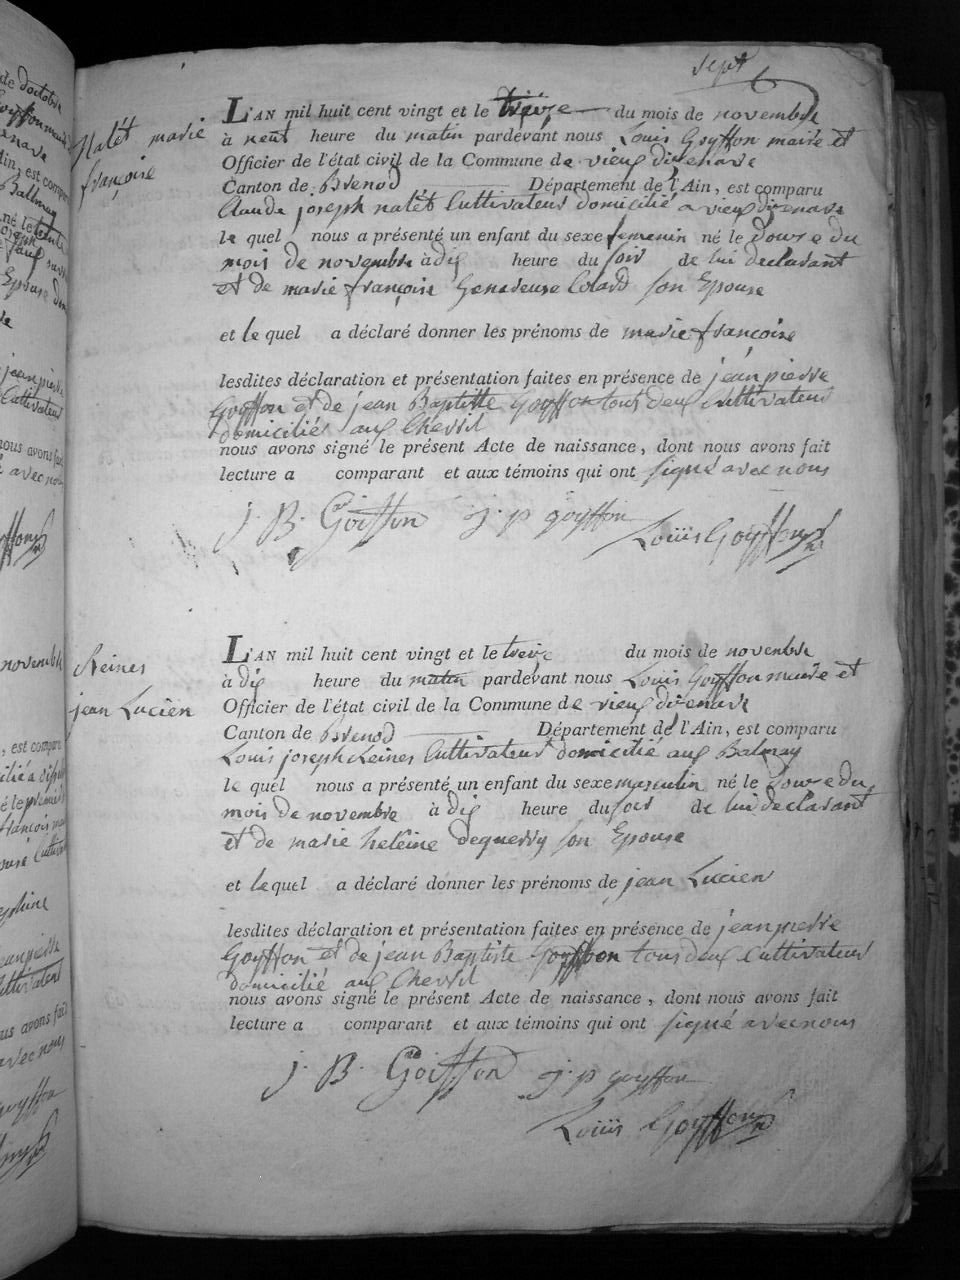 sept
Nalet marie
françoise
L'AN mil huit cent vingt et le treize du mois de novembre
à neuf heure du matin pardevant nous Louis Goyffon maire et
Officier de l'état civil de la Commune de vieux dizenave
Canton de Brenod Département de l'Ain, est comparu
Claude joseph nalet Cultivateur domicilié a vieux dizenave
le quel nous a présenté un enfant du sexe femenin né le douze du
mois de novembre à dix heure du soir de lui declarant
et de marie françoise Genereuse Colard son Epouse
et le quel a déclaré donner les prénoms de marie françoise
lesdites déclaration et présentation faites en présence de jean pierre
Goyffon et de jean Baptiste Goyffon tous deux Cultivateurs
domiciliés aux Chevril
nous avons signé le présent Acte de naissance, dont nous avons fait
lecture a comparant et aux témoins qui ont signé avec nous
J. B. Goiffon j. p goyffon
Louis Goyffon
Reines
jean Lucien
L'AN mil huit cent vingt et le treize du mois de novembre
à dix heure du matin pardevant nous Louis Goyffon maire et
Officier de l'état civil de la Commune de vieux dizenave
Canton de Brenod Département de l'Ain, est comparu
Louis joseph Reines Cultivateur domicilié aux Balmay
le quel nous a présenté un enfant du sexe masculin né le douze du
mois de novembre à dix heure du soir de lui declarant
et de marie heleine dequerry son Epouse
et le quel a déclaré donner les prénoms de jean Lucien
lesdites déclaration et présentation faites en présence de jean pierre
Goyffon et de jean Baptiste Goyffon tous deux Cultivateurs
domicilié aux Chevril
nous avons signé le présent Acte de naissance, dont nous avons fait
lecture a comparant et aux témoins qui ont signé avec nous
J. B. Goiffon j. p goyffon
Louis Goyffon